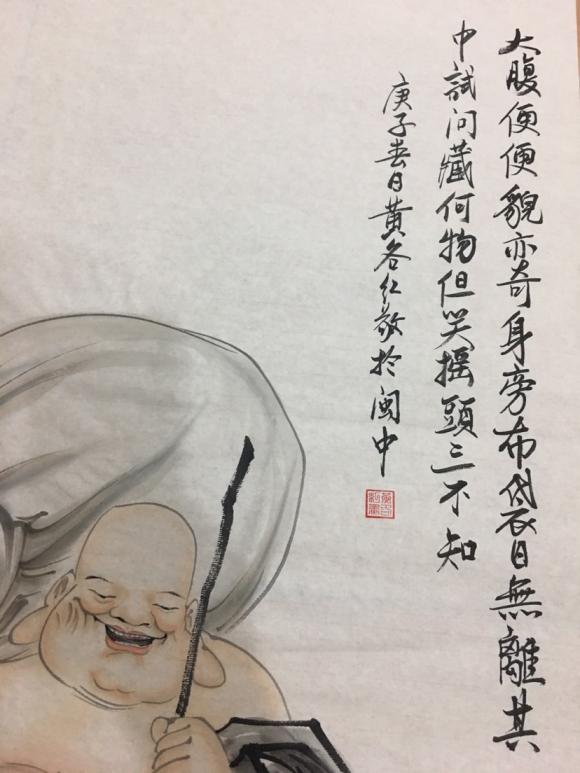 大腹便便貌亦奇身旁布袋日無離其
中試问藏何物但笑摇頭三不知
庚子春日黄谷仁敬於閬中